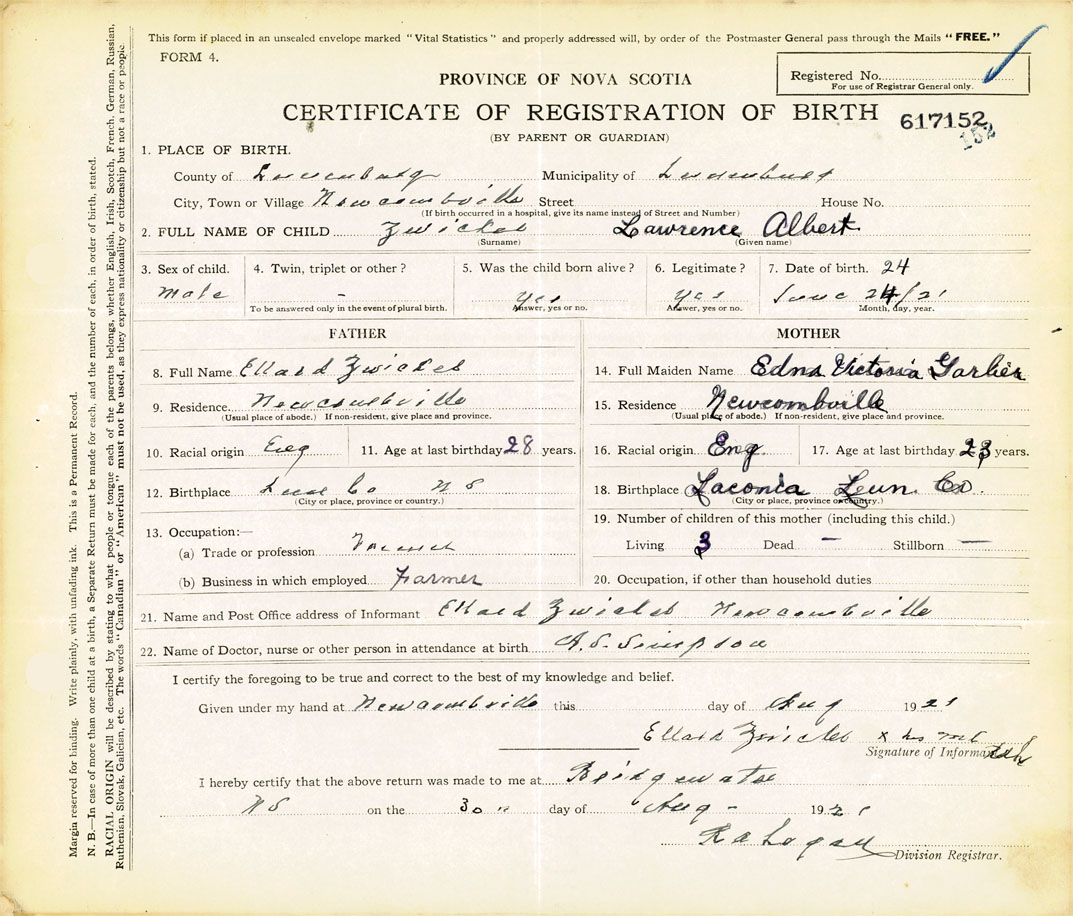 This form if placed in an unsealed envelope marked "Vital Statistics" and properly addressed will, by order of the Postmaster General pass through the Mails "FREE."
FORM 4.
PROVINCE OF NOVA SCOTIA
Registered No.
For use of Registrar General only.
CERTIFICATE OF REGISTRATION OF BIRTH
617152
152
(BY PARENT OR GUARDIAN)
1. PLACE OF BIRTH.
County of Lunenburg Municipality of Lunenburg
City, Town or Village Newcombville Street House No.
(If birth occurred in a hospital, give its name instead of Street and Number)
2. FULL NAME OF CHILD Zwicker Lawrence Albert
(Surname) (Given name)
3. Sex of child. 4. Twin, triplet or other? 5. Was the child born alive? 6. Legitimate? 7. Date of birth. 24
Male - yes yes June 24/21
To be answered only in the event of plural birth. Answer, yes or no. Answer, yes or no. Month, day, year.
FATHER MOTHER
8. Full Name Ellard Zwicker 14. Full Maiden Name Edna Victoria
9. Residence Newcombville 15. Residence Newcombville
(Usual place of abode.) If non-resident, give place and province. (Usual place of abode.) If non-resident, give place and province.
10. Racial origin Eng 11. Age at last birthday 28 years. 16. Racial origin Eng 17. Age at last birthday 23 years.
12. Birthplace Lun Co N S 18. Birthplace Laconia Lun Co.
(City or place, province or country.) (City or place, province or country.)
13. Occupation:— 19. Number of children of this mother (including this child.)
(a) Trade or profession Farmer Living 3 Dead - Stillborn -
(b) Business in which employed Farmer 20. Occupation, if other than household duties
21. Name and Post Office address of Informant Ellard Zwicker Newcombville
22. Name of Doctor, nurse or other person in attendance at birth A. S. Simpson
I certify the foregoing to be true and correct to the best of my knowledge and belief.
Given under my hand at Newcombville this day of Aug 1921
Ellard Zwicker x his
Signature of Informant
I hereby certify that the above return was made to me at Bridgewater
N S on the 30 " day of Aug - 1921
R a Logan
Division Registrar.
Margin reserved for binding. Write plainly, with unfading ink. This is a Permanent Record.
N. B.—In case of more than one child at a birth, a Separate Return must be made for each, and the number of each, in order of birth, stated.
RACIAL ORIGIN will be described by stating to what people or tongue each of the parents belongs, whether English, Irish, Scotch, French, German, Russian,
Ruthenian, Slovak, Galician, etc. The words "Canadian" or "American" must not be used, as they express nationality or citizenship but not a race or people